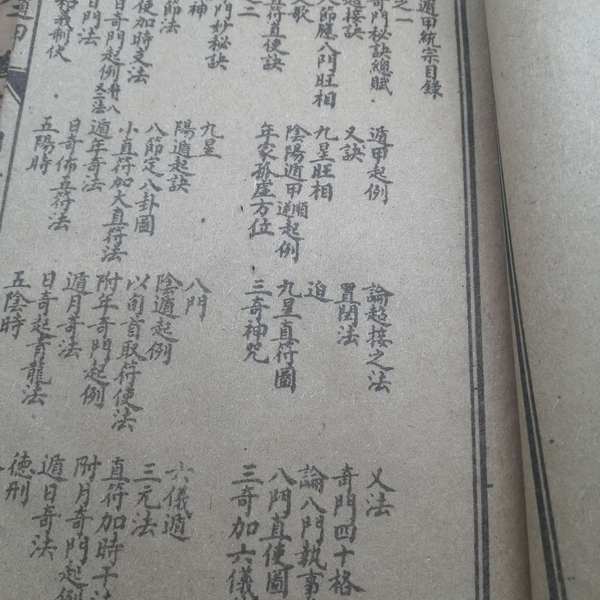 遁甲統宗目錄
之一
奇門秘訣總賦 遁甲起例 論超接之法 又法
超接訣 又訣 置閏法 奇門四十格
八節應八門旺相 九星旺相 迫 論八門執事
歌 陰陽遁甲順逆起例 九星直符圖 八門直使圖
直符直使訣 年家孤虛方位 三奇神咒 三奇加六儀
之二
門妙秘訣
神 九星 八門 六儀遁
節法 陽遁起訣 陰遁起例 三元法
使加時支法 八節定八卦圖 以旬首取符使法 直符加時干法
日奇門起例 小直符加大直符法 附年奇門起例 附月奇門起例
日門法 遁年奇法 遁月奇法 遁日奇法
和義制伏 日奇佈五符法 日奇起青龍法 德刑
五陽時 五陰時
遁甲